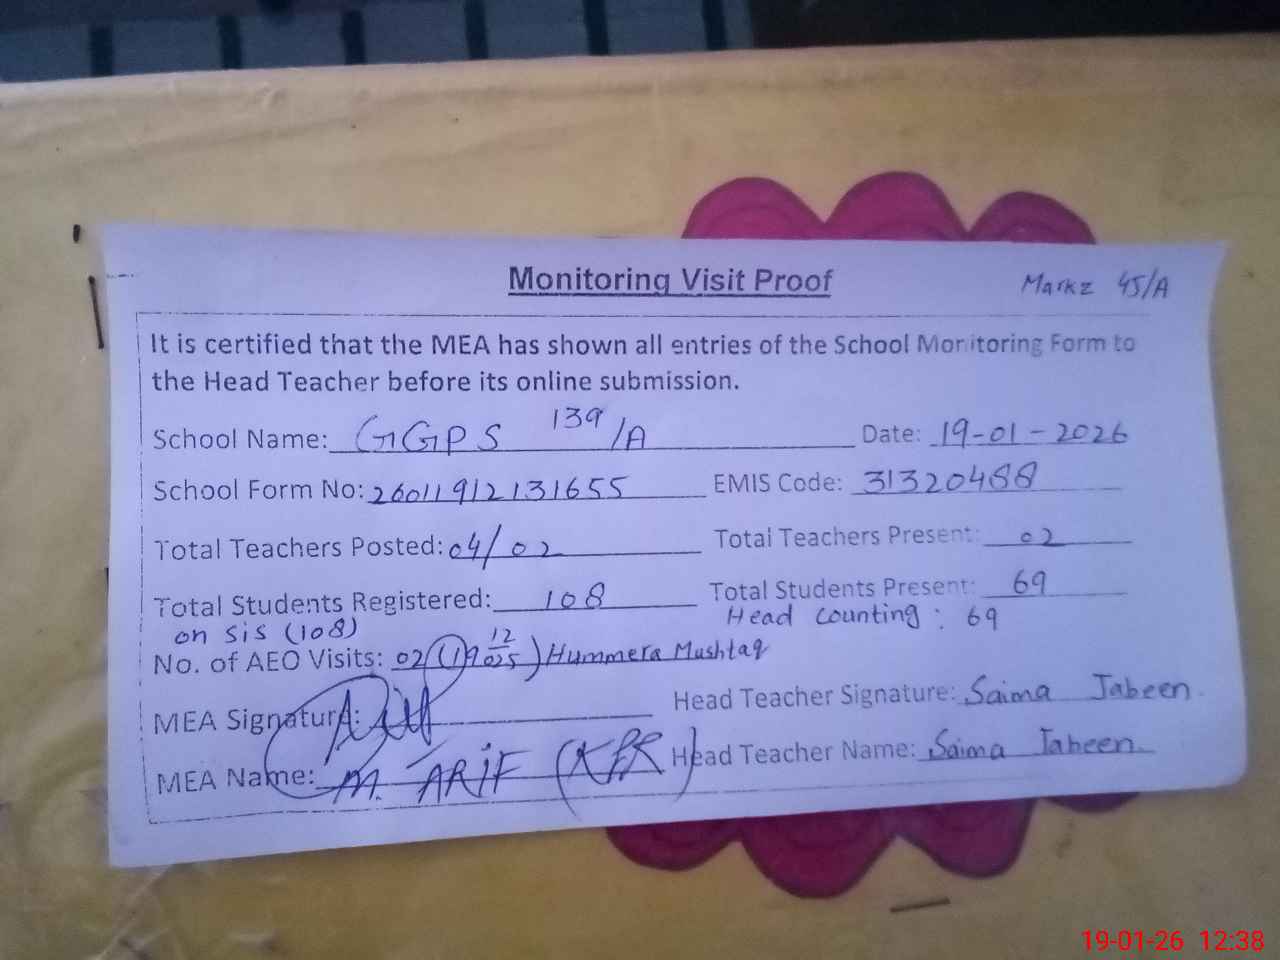 Monitoring Visit Proof
Markz 45/A
It is certified that the MEA has shown all entries of the School Monitoring Form to
the Head Teacher before its online submission.
School Name: GGPS 139/A Date: 19-01-2026
School Form No: 26011912131655 EMIS Code: 31320488
Total Teachers Posted: 04/02 Total Teachers Present: 02
Total Students Registered: 108 Total Students Present: 69
on sis (108) Head Counting: 69
No. of AEO Visits: 02 (19 12 025) Hummera Mushtaq
MEA Signature: Head Teacher Signature: Saima Jabeen.
MEA Name: M. ARIF (KPR) Head Teacher Name: Saima Jabeen
19-01-26 12:38